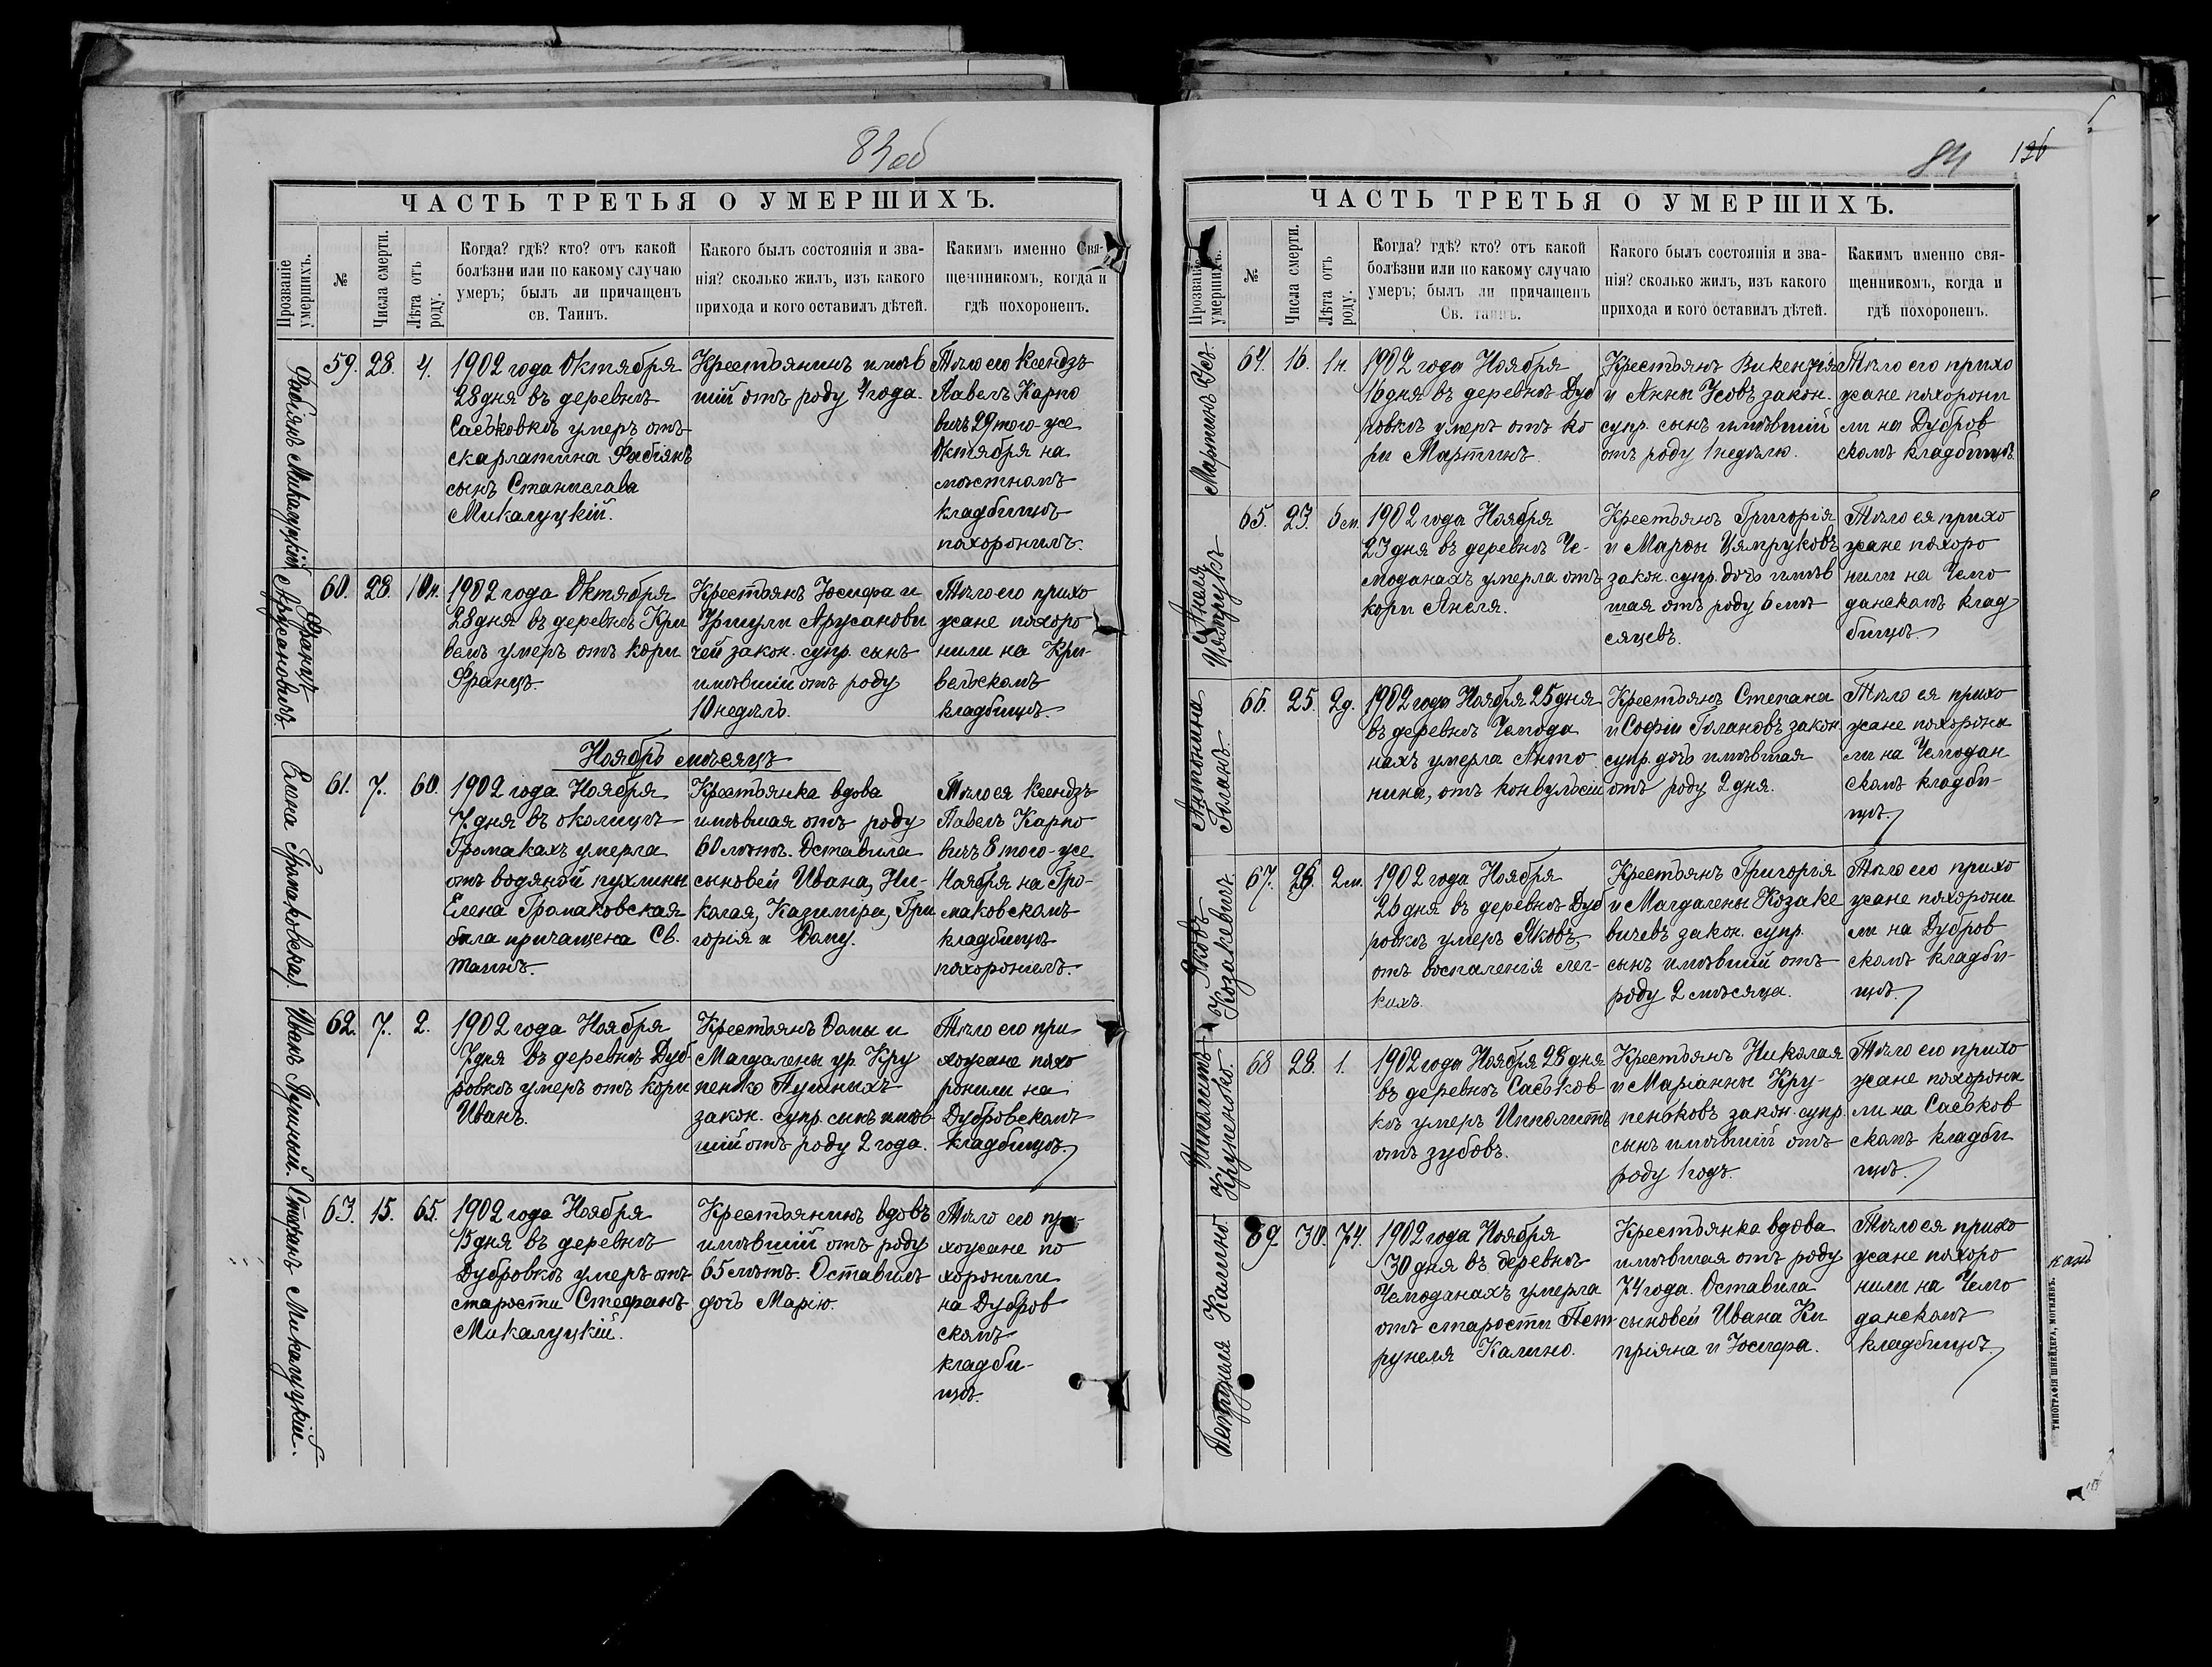 83 об
ЧАСТЬ ТРЕТЬЯ О УМЕРШИХЪ.
Прозваніе умершихъ.
№
Числа смерти.
Лѣта отъ роду.
Когда? гдѣ? кто? отъ какой
болѣзни или по какому случаю
умеръ; былъ ли причащенъ
св. Таинъ.
Какого былъ состоянія и зва-
нія? сколько жилъ, изъ какого
прихода и кого оставилъ дѣтей.
Какимъ именно Свя-
щенникомъ, когда и
гдѣ похороненъ.
Фабіянъ Микалуцкій
59. 28. 4.
1902 года Октября
28 дня въ деревнѣ
Саськовкѣ умеръ отъ
скарлатина Фабіянъ
сынъ Станислава
Микалуцкій.
Крестьянинъ имѣв
шій отъ роду 4 года.
Тѣло его Ксендзъ
Павелъ Карпо
вичъ 29 того-же
Октября на
мѣстномъ
кладбищѣ
похоронилъ.
Францъ
Арусановичъ.
60. 28. 10н.
1902 года Октября
28 дня въ деревнѣ Кри
вель умеръ отъ кори
Францъ.
Крестьянъ Іосифа и
Уршули Арусанови
чей закон. супр. сынъ
имѣвшій отъ роду
10 недѣль.
Тѣло его прихо
жане похоро
нили на Кри-
вельскомъ
кладбищѣ.
Ноябрь мѣсяцъ
Елена Громаковская
61. 7. 60.
1902 года Ноября
7 дня въ околицѣ
Громакахъ умерла
отъ водяной пухлины
Елена Громаковская
была причащена Св.
Таинъ.
Крестьянка вдова
имѣвшая отъ роду
60 лѣтъ. Оставила
сыновей Ивана, Ни-
колая, Казиміра, Гри
горія и Фому.
Тѣло ея Ксендзъ
Павелъ Карпо
вичъ 8 того-же
Ноября на Гро-
маковскомъ
кладбищѣ
похоронилъ.
Иванъ Пушный.
62. 7. 2.
1902 года Ноября
7 дня въ деревнѣ Дуб-
ровкѣ умеръ отъ кори
Иванъ.
Крестьянъ Фомы и
Магдалены ур. Кру
пенко Пушныхъ
закон. супр. сынъ имѣв
шій отъ роду 2 года.
Тѣло его при
хожане похо
ронили на
Дубровскомъ
кладбищѣ.
Стефанъ Микалуцкій.
63. 15. 65.
1902 года Ноября
15 дня въ деревнѣ
Дубровкѣ умеръ отъ
старости Стефанъ
Микалуцкій.
Крестьянинъ вдовъ
имѣвшій отъ роду
65 лѣтъ. Оставилъ
дочь Марію.
Тѣло его при-
хожане по
хоронили
на Дубров
скомъ
кладби-
щѣ.
84
126
ЧАСТЬ ТРЕТЬЯ О УМЕРШИХЪ.
умершихъ.
№
Числа смерти.
Лѣта отъ роду.
Когда? гдѣ? кто? отъ какой
болѣзни или по какому случаю
умеръ; былъ ли причащенъ
Св. таинъ.
Какого былъ состоянія и зва-
нія? сколько жилъ, изъ какого
прихода и кого оставилъ дѣтей.
Какимъ именно свя-
щенникомъ, когда и
гдѣ похороненъ.
Мартинъ Усъ.
64. 16. 1н.
1902 года Ноября
16 дня въ деревнѣ Дуб
ровкѣ умеръ отъ ко
ри Мартинъ.
Крестьянъ Викентія
и Анны Усовъ закон.
супр. сынъ имѣвшій
отъ роду 1 недѣлю.
Тѣло его прихо
жане похорони
ли на Дубров
скомъ кладбищѣ.
Анеля
Цямпрукъ
65. 23. 6м.
1902 года Ноября
23 дня въ деревнѣ Че-
моданахъ умерла отъ
кори Анеля.
Крестьянъ Григорія
и Марфы Цямпруковъ
закон. супр. дочь имѣв
шая отъ роду 6 мѣ
сяцевъ.
Тѣло ея прихо
жане похоро
нили на Чемо
данскомъ клад
бищѣ.
Антонина
Голанъ.
66. 25. 2д.
1902 года Ноября 25 дня
въ деревнѣ Чемода
нахъ умерла Анто
нина, отъ конвульсіи
Крестьянъ Степана
и Софіи Голановъ закон.
супр. дочь имѣвшая
отъ роду 2 дня.
Тѣло ея прихо
жане похорони
ли на Чемодан
скомъ кладби-
щѣ.
Яковъ
Козакевичъ.
67. 26. 2м.
1902 года Ноября
26 дня въ деревнѣ Дуб
ровкѣ умеръ Яковъ,
отъ воспаленія лег-
кихъ.
Крестьянъ Григорья
и Магдалены Козаке
вичевъ закон. супр.
сынъ имѣвшій отъ
роду 2 мѣсяца.
Тѣло его прихо
жане похорони
ли на Дубров
скомъ кладби-
щѣ.
Ипполитъ
Крупенько.
68 28. 1.
1902 года Ноября 28 дня
въ деревнѣ Саськов
кѣ умеръ Ипполитъ
отъ зубовъ.
Крестьянъ Николая
и Маріанны Кру-
пеньковъ закон. супр.
сынъ имѣвшій отъ
роду 1 годъ.
Тѣло его прихо
жане похорони
ли на Саськов
скомъ кладби
щѣ.
Петрунеля Калино.
69 30. 74.
1902 года Ноября
30 дня въ деревнѣ
Чемоданахъ умерла
отъ старости Пет
рунеля Калино.
Крестьянка вдова
имѣвшая отъ роду
74 года. Оставила
сыновей Ивана Ки
пріяна и Іосифа.
Тѣло ея прихо
жане похоро
нили на Чемо
данскомъ
кладбищѣ.
ТИПОГРАФІЯ ШНЕЙДЕРА, МОГИЛЕВЪ.